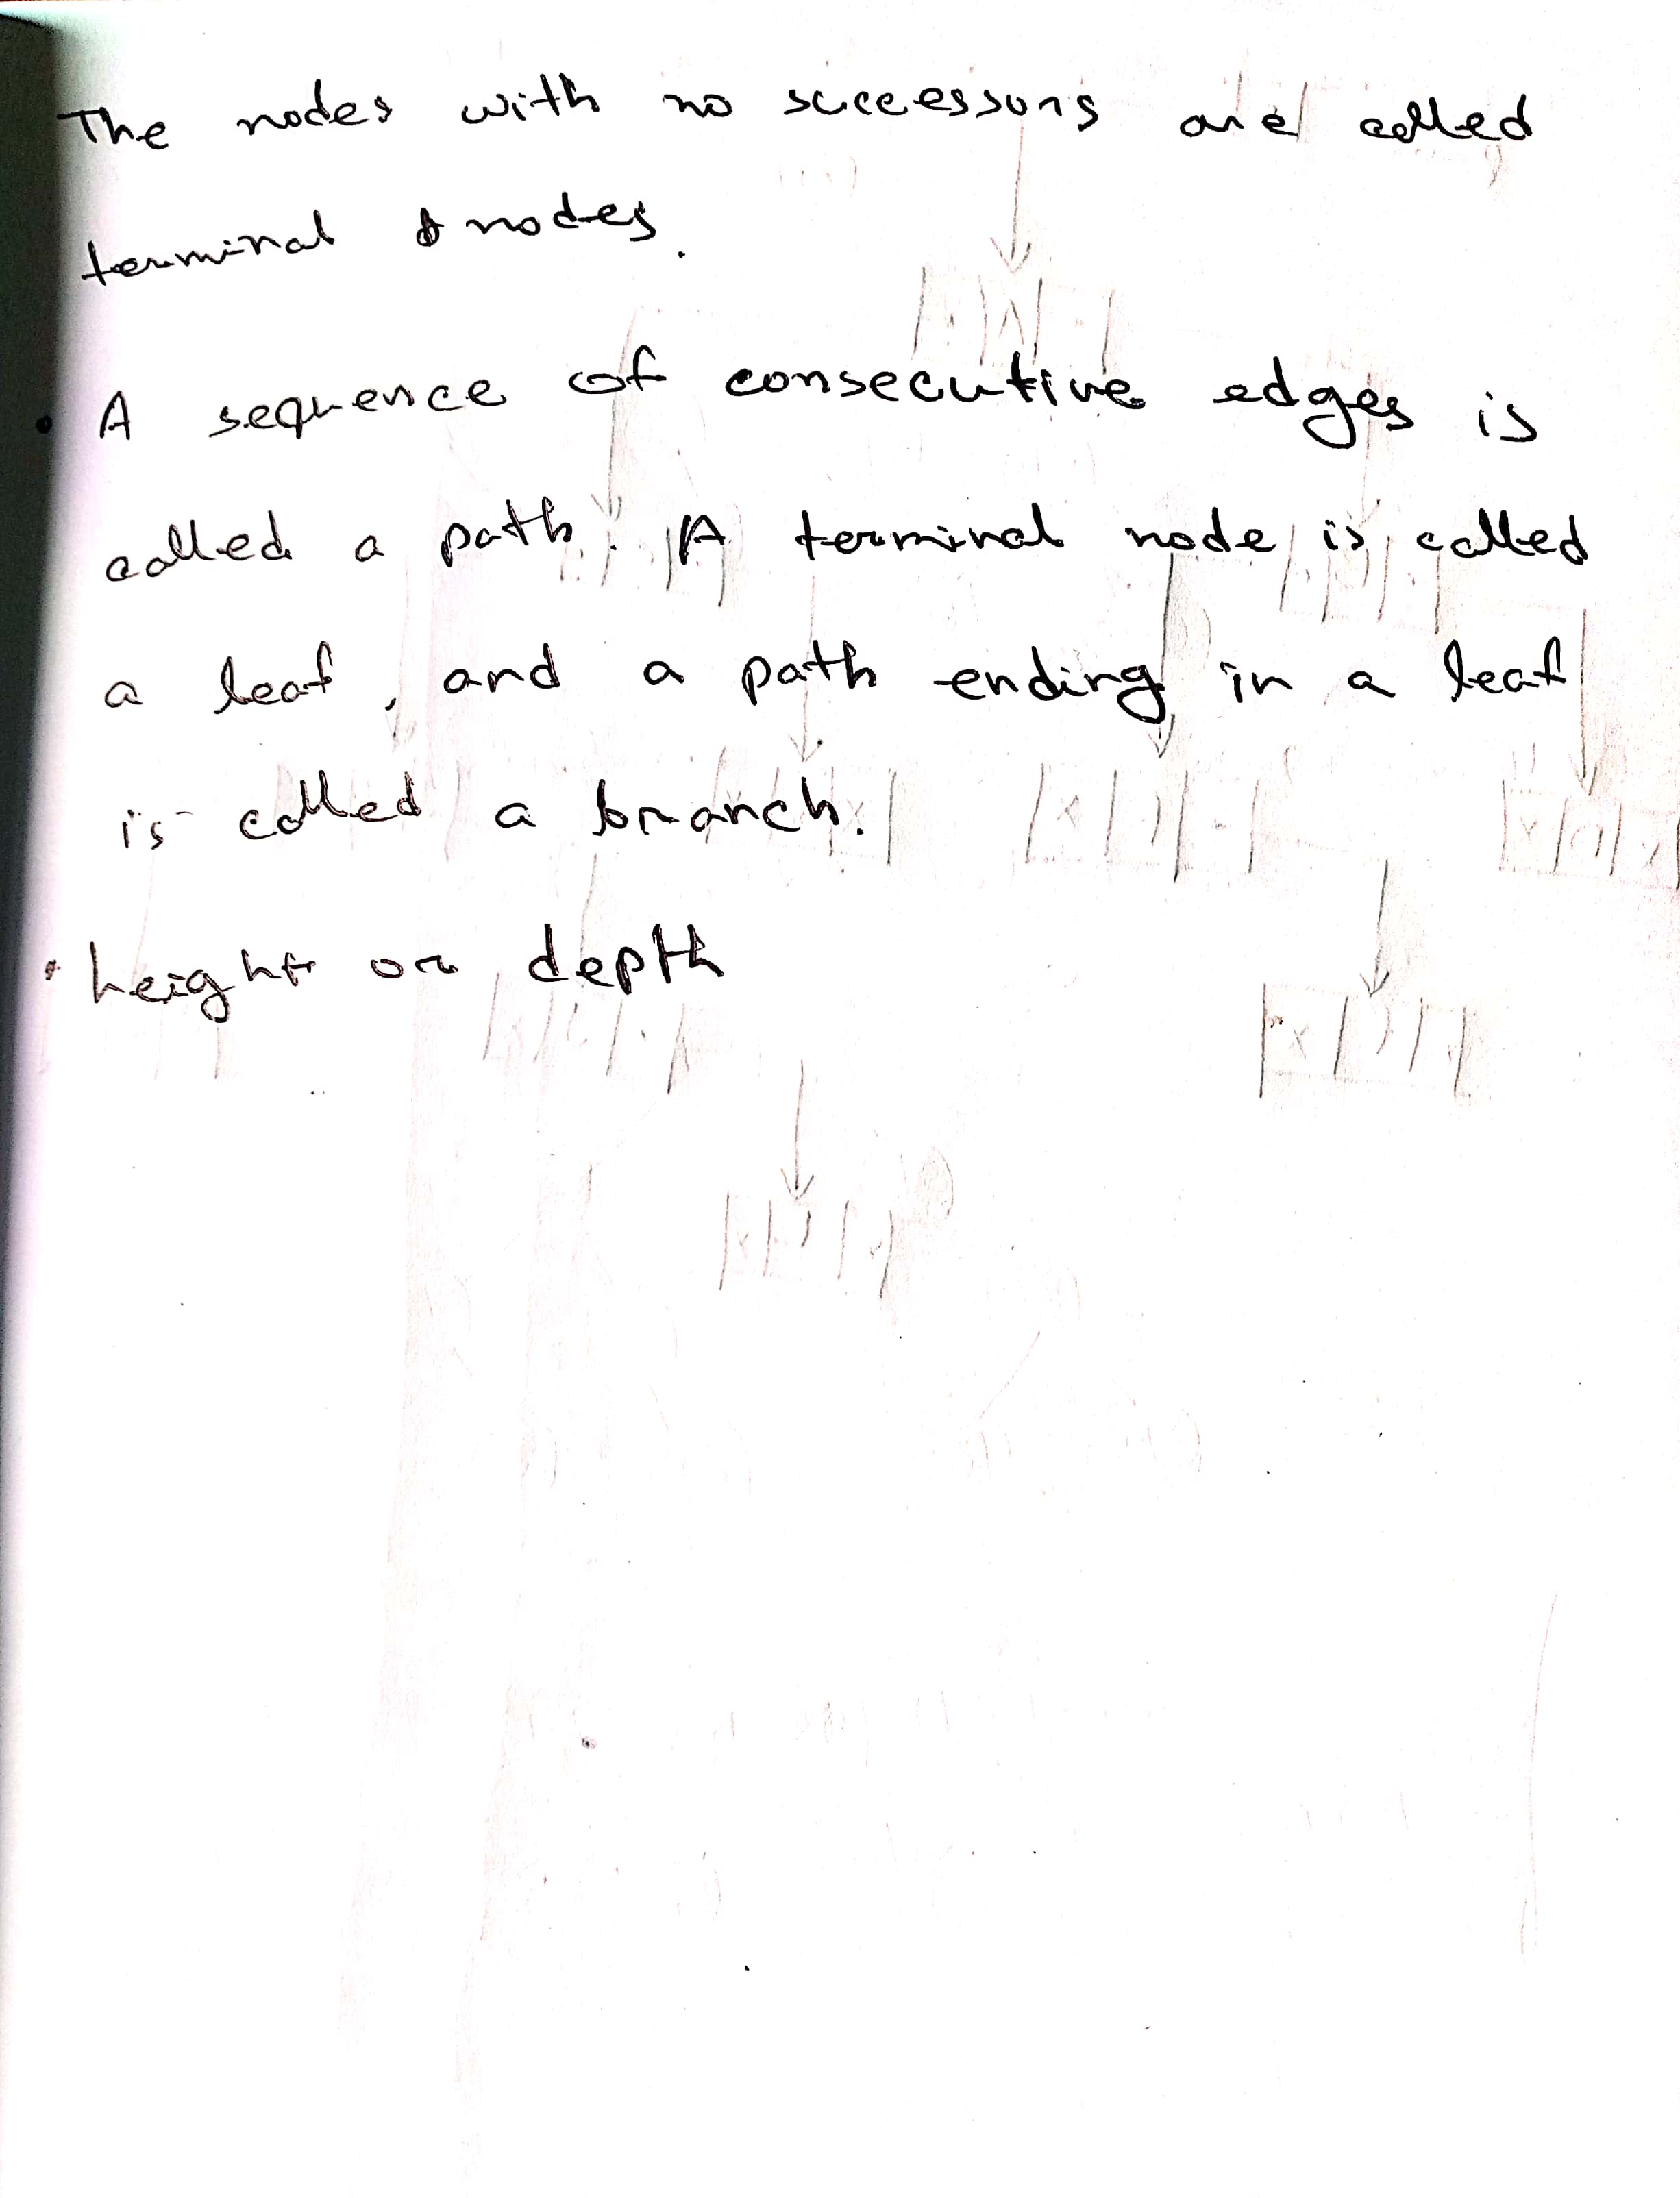 The nodes with no successors are called
terminal nodes.
• A sequence of consecutive edges is
called a path. A terminal node is called
a leaf, and a path ending in a leaf
is called a branch.
• height or depth